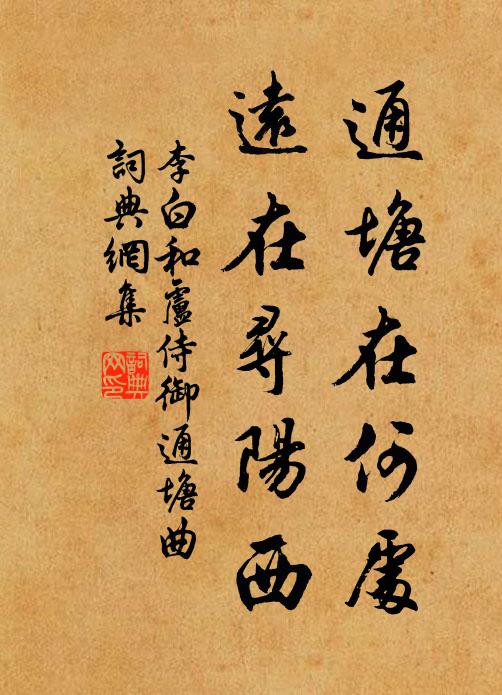 通塘在何處
遠在尋陽西
李白和盧侍御通塘曲
詞典網集
詞典網印